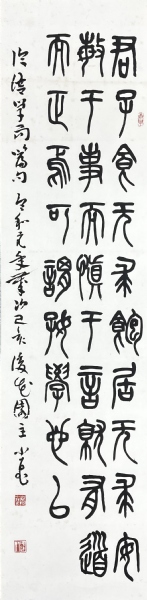 君子食无求飽居无求安
敏于事而慎于言就有道
而正焉可謂好學也已
论语学而篇句令和元年歲次己亥後花園主小